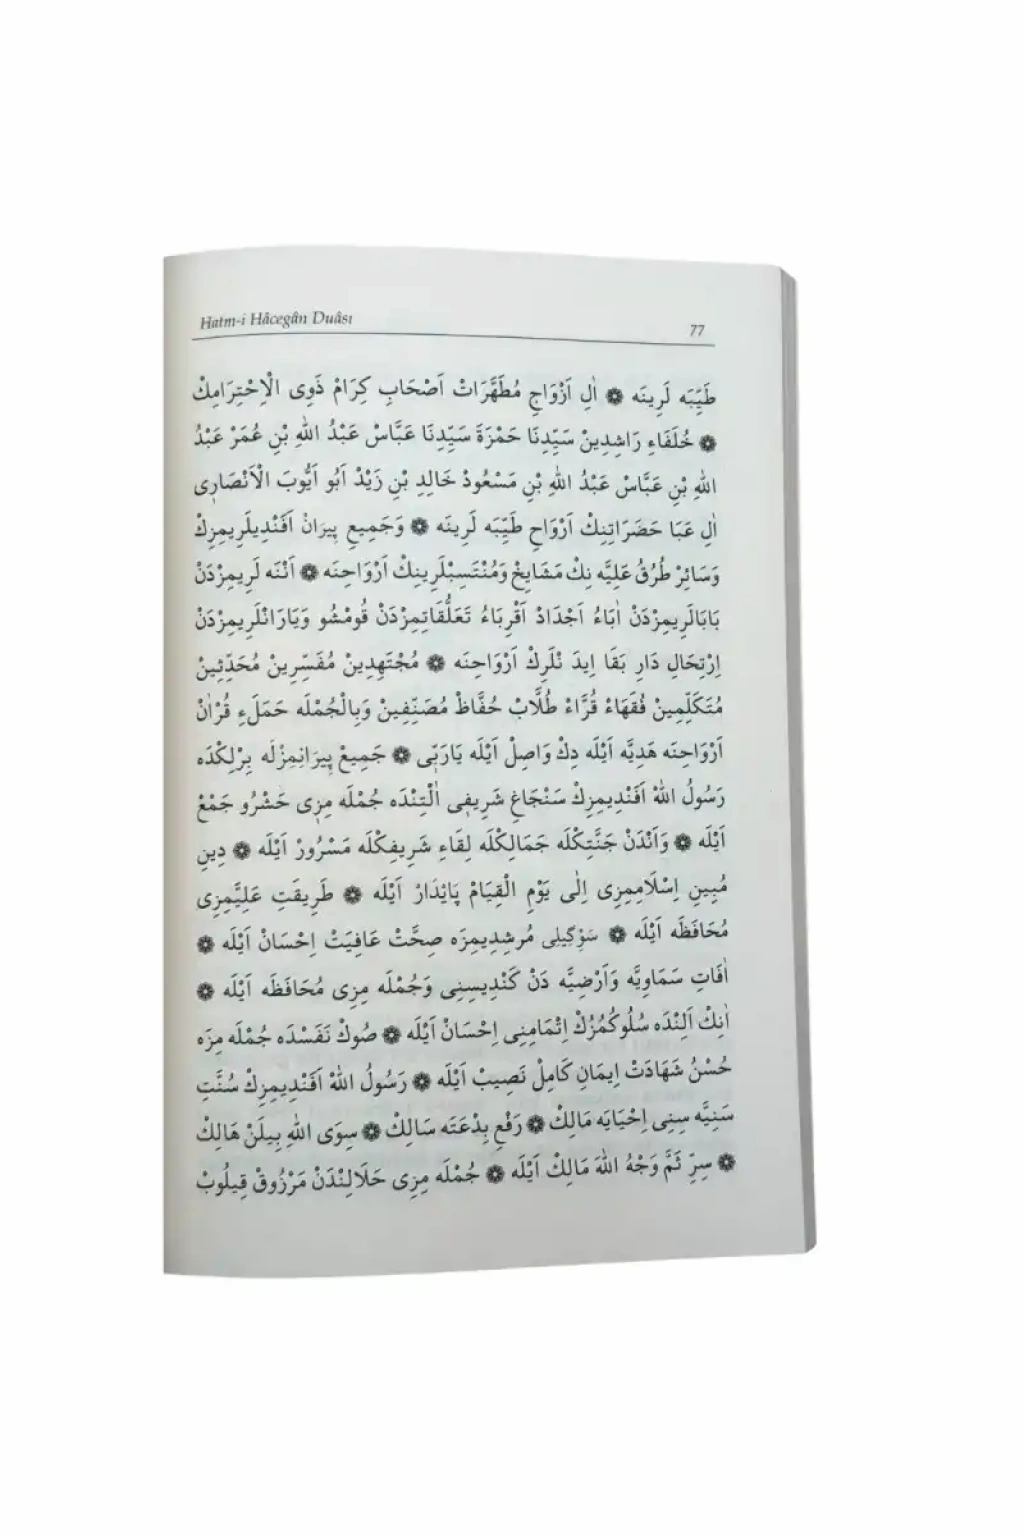 Hatm-i Hâcegân Duâsı
77
طَيِّبَه لَرِينَه ❁ اٰلِ اَزْوَاجِ مُطَهَّرَاتْ اَصْحَابِ كِرَامْ ذَوِى الْاِحْتِرَامِكْ
❁ خُلَفَاءِ رَاشِدِينْ سَيِّدِنَا حَمْزَةَ سَيِّدِنَا عَبَّاسْ عَبْدُ اللهِ بْنِ عُمَرْ عَبْدُ
اللهِ بْنِ عَبَّاسْ عَبْدُ اللهِ بْنِ مَسْعُودْ خَالِدِ بْنِ زَيْدْ اَبُو اَيُّوبَ الْاَنْصَارِى
اٰلِ عَبَا حَضَرَاتِنِكْ اَرْوَاحِ طَيِّبَه لَرِينَه ❁ وَجَمِيعِ پِيرَانْ اَفَنْدِيلَرِيمِزِكْ
وَسَائِرْ طُرُقُ عَلِيَّه نِكْ مَشَايِخْ وَمُنْتَسِبْلَرِينِكْ اَرْوَاحِنَه ❁ اَنْنَه لَرِيمِزْدَنْ
بَابَالَرِيمِزْدَنْ اٰبَاءُ اَجْدَادْ اَقْرِبَاءُ تَعَلُّقَاتِمِزْدَنْ قُومْشُو وَيَارَانْلَرِيمِزْدَنْ
اِرْتِحَالِ دَارِ بَقَا اِيدَ نْلَرِكْ اَرْوَاحِنَه ❁ مُجْتَهِدِينْ مُفَسِّرِينْ مُحَدِّثِينْ
مُتَكَلِّمِينْ فُقَهَاءْ قُرَّاءْ طُلَّابْ حُفَّاظْ مُصَنِّفِينْ وَبِالْجُمْلَه حَمَلَءِ قُرْاٰنْ
اَرْوَاحِنَه هَدِيَّه اَيْلَه دِكْ وَاصِلْ اَيْلَه يَارَبِّى ❁ جَمِيعْ پِيرَانِمِزْلَه بِرْلِكْدَه
رَسُولُ اللهْ اَفَنْدِيمِزِكْ سَنْجَاغِ شَرِيفِى اٰلْتِنْدَه جُمْلَه مِزِى حَشْرُو جَمْعْ
اَيْلَه ❁ وَاَنْدَنْ جَنَّتِكْلَه جَمَالِكْلَه لِقَاءِ شَرِيفِكْلَه مَسْرُورْ اَيْلَه ❁ دِينِ
مُبِينِ اِسْلَامِمِزِى اِلٰى يَوْمِ الْقِيَامْ پَايْدَارْ اَيْلَه ❁ طَرِيقَتِ عَلِيَّمِزِى
مُحَافَظَه اَيْلَه ❁ سَوْكِيلِى مُرشِدِيمِزَه صِحَّتْ عَافِيَتْ اِحْسَانْ اَيْلَه ❁
اٰفَاتِ سَمَاوِيَّه وَاَرْضِيَّه دَنْ كَنْدِيسِنِى وَجُمْلَه مِزِى مُحَافَظَه اَيْلَه ❁
اٰنِكْ اَلِنْدَه سُلُوكُمُزُكْ اِتْمَامِنِى اِحْسَانْ اَيْلَه ❁ صُوكْ نَفَسْدَه جُمْلَه مِزَه
حُسْنُ شَهَادَتْ اِيمَانِ كَامِلْ نَصِيبْ اَيْلَه ❁ رَسُولُ اللهْ اَفَنْدِيمِزِكْ سُنَّتِ
سَنِيَّه سِنِى اِحْيَايَه مَالِكْ ❁ رَفْعِ بِدْعَتَه سَالِكْ ❁ سِوَى اللهِ بِيلَنْ هَالِكْ
❁ سِرِّ ثَمَّ وَجْهُ اللهَ مَالِكْ اَيْلَه ❁ جُمْلَه مِزِى حَلَالِنْدَنْ مَرْزُوقْ قِيلُوبْ